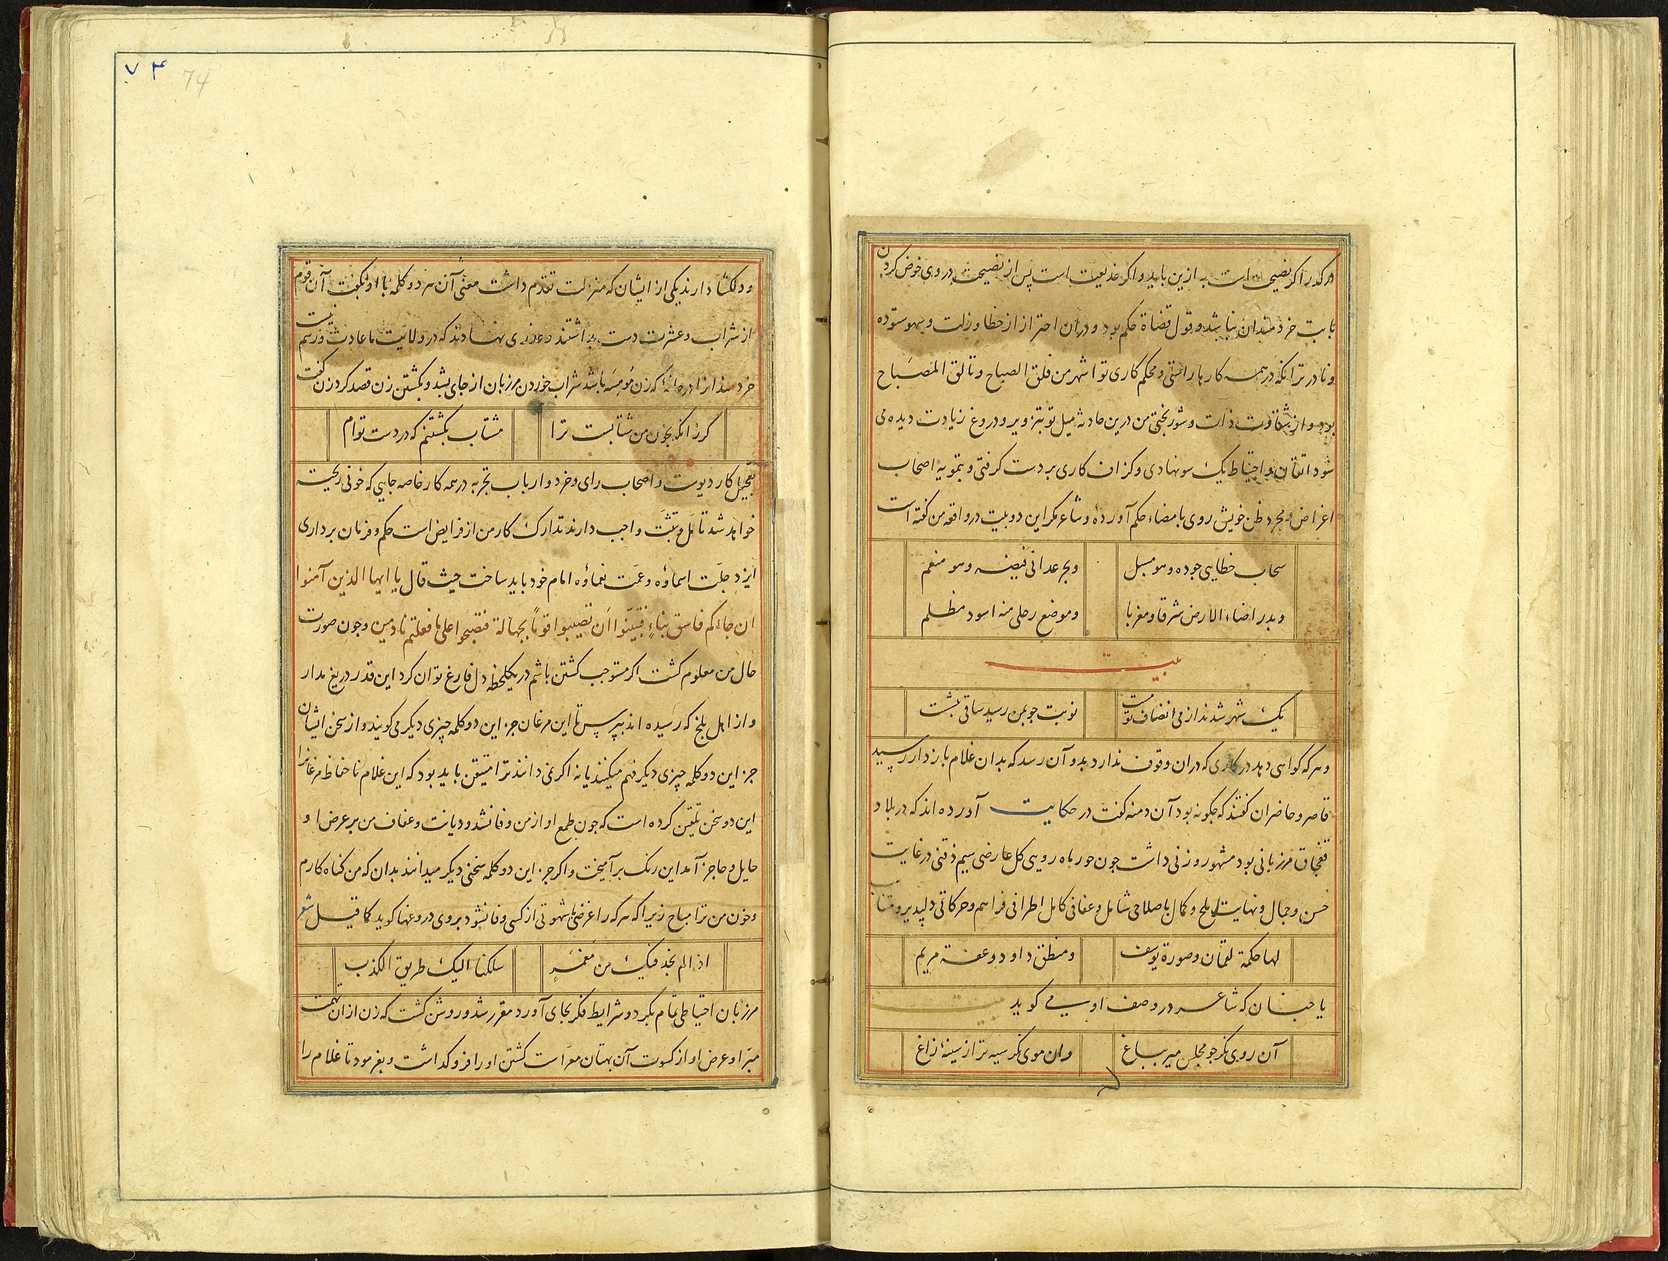 هرکه را اگر نصیحت است به ازین باید و اگر خدیعت است پس از نصیحت در وی خوض کردن
بابت خردمندان نباشد و قول قضاة حکم بود و دران احتراز از خطا و زلت و سهو ستوده
و نادر ترآنکه در همه کارها راستی و محکم کاری تو اشهر من فلق الصباح و تألق المصباح
بود و از شقاوت ذات و شوربختی من درین حادثه میل تو بتزویر و دروغ زیادت دیده می
شود اتقان و احتیاط یک سو نهادی و گزاف کاری بر دست گرفتی و بتمویه اصحاب
اغراض و بمجرد ظن خویش روی بامضاء حکم آورده و شاعر مگر این دو بیت در واقعه من گفته است
سحاب خطانی جوده و هو مسبل
و بحر عدانی فیضه و هو مفعم
و بدر اضاء الارض شرقا و مغربا
و موضع رحلی منه اسود مظلم
بیت
یک شهر شدند از می انصاف تو مست
نوبت چو بمن رسید ساقی بنشست
و هرکه گواهی دهد در کاری که دران وقوف ندارد بدو آن رسد که بدان غلام بازدار رسید
قاضی و حاضران گفتند که چگونه بود آن دمنه گفت در حکایت آورده‌اند که در بلاد
قفچاق مرزبانی بود مشهور و زنی داشت چون حور ماه رویی گل عارضی سیم ذقنی در غایت
حسن و جمال و نهایت ملح و کمال باصلاحی شامل و عفافی کامل اطرافی فراهم و حرکاتی دلپذیر و متناسب
لها حکمة لقمان و صورة یوسف
و منطق داود و عفة مریم
یا چنان که شاعر در وصف او می گوید بیت
آن روی نگر چو مجلس میر بباغ
وان موی نگر سیه تر از سینه زاغ
۷۴
74
و دلگشا دارند یکی از ایشان که منزلت تقدم داشت معنی آن هر دو کلمه با او بگفت آن قوم
از شراب و عشرت دست بداشتند و عذری نهادند که در ولایت ما عادت و رسم نیست
خردمند را در خانه که زن مومسه باشد شراب خوردن مرزبان از جای بشد و بکشتن زن قصد کرد زن گفت
گر زانکه بخون من شتابست ترا
مشتاب بکشتنم که در دست توام
تعجیل کار دیوست و اصحاب رای و خرد و ارباب تجربه در همه کار خاصه جایی که خونی ریخته
خواهد شد تأمل و تثبت واجب دارند تدارک کار من از فرایض است حکم و فرمان برداری
ایزد جلت اسماؤه و عمت نعماؤه امام خود باید ساخت حیث قال یا ایها الذین آمنوا
ان جاءکم فاسق بنباءٍ فتبینوا ان تصیبوا قوماً بجهالة فتصبحوا علی ما فعلتم نادمین و چون صورت
حال من معلوم گشت اگر مستوجب کشتن باشم در یکلحظه دل فارغ توان کرد این قدر دریغ مدار
و از اهل بلخ که رسیده اند بپرس تا این مرغان جز این دو کلمه چیزی دیگر می گویند و از سخن ایشان
جز این دو کلمه چیزی دیگر فهم میکنند یا نه اگر نمی دانند ترا متیقن باید بود که این غلام ناحفاظ مرغانرا
این دو سخن تلقین کرده است که چون طمع او از من وفا نشد و دیانت و عفاف من بر عرض او
حایل و حاجز آمد این رنگ برآمیخت و اگر جز این دو کلمه سخنی دیگر میدانند بدان که من گناه کارم
و خون من ترا مباح زیرا که هرکه را غرضی یا شهوتی از کسی وفا نشود بر وی دروغها گوید کما قیل شعر
اذا لم نجد فیک من مغمزٍ
سلکنا الیک طریق الکذب
مرزبان احتیاطی تمام بکرد و شرایط تفکر بجای آورد مقرر شد و روشن گشت که زن از ان تهمت
مبرا و عرض او از کسوت آن بهتان معراست کشتن او را فرو گذاشت و بفرمود تا غلام را